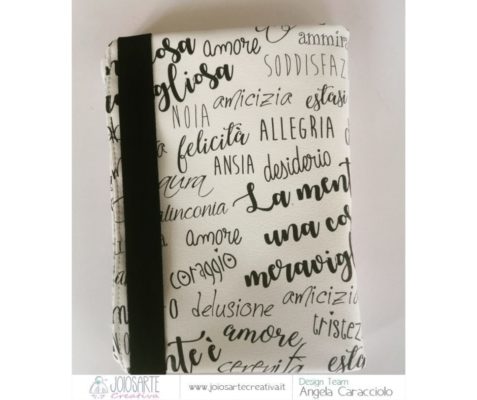 amore ammira
meravigliosa SODDISFAZ
NOIA amicizia estasi
felicità ALLEGRIA
ANSIA desiderio
aura La ment
alinconia una co
amore meravigl
coraggio
O delusione amicizia
amore tristez
nte è serenità esta
JOIOSARTE
Creativa
www.joiosartecreativa.it
Design Team
Angela Caracciolo